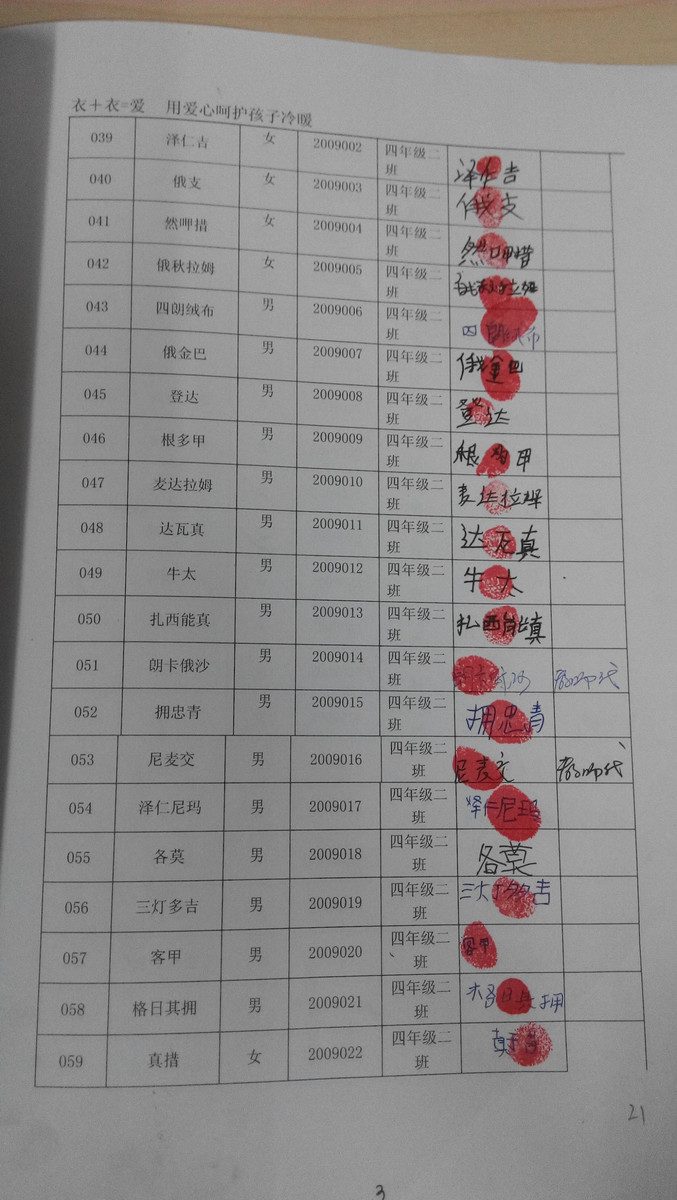 衣+衣=爱 用爱心呵护孩子冷暖
039 泽仁吉 女 2009002 四年级二班 泽仁吉
040 俄支 女 2009003 四年级二班 俄支
041 然呷措 女 2009004 四年级二班 然呷措
042 俄秋拉姆 女 2009005 四年级二班 俄秋拉姆
043 四朗绒布 男 2009006 四年级二班 四朗绒布
044 俄金巴 男 2009007 四年级二班 俄金巴
045 登达 男 2009008 四年级二班 登达
046 根多甲 男 2009009 四年级二班 根多甲
047 麦达拉姆 男 2009010 四年级二班 麦达拉姆
048 达瓦真 男 2009011 四年级二班 达瓦真
049 牛太 男 2009012 四年级二班 牛太
050 扎西能真 男 2009013 四年级二班 扎西能真
051 朗卡俄沙 男 2009014 四年级二班
052 拥忠青 男 2009015 四年级二班 拥忠青
053 尼麦交 男 2009016 四年级二班 尼麦交
054 泽仁尼玛 男 2009017 四年级二班 泽仁尼玛
055 各莫 男 2009018 四年级二班 各莫
056 三灯多吉 男 2009019 四年级二班 三灯多吉
057 客甲 男 2009020 四年级二班 客甲
058 格日其拥 男 2009021 四年级二班 格日其拥
059 真措 女 2009022 四年级二班
21
3